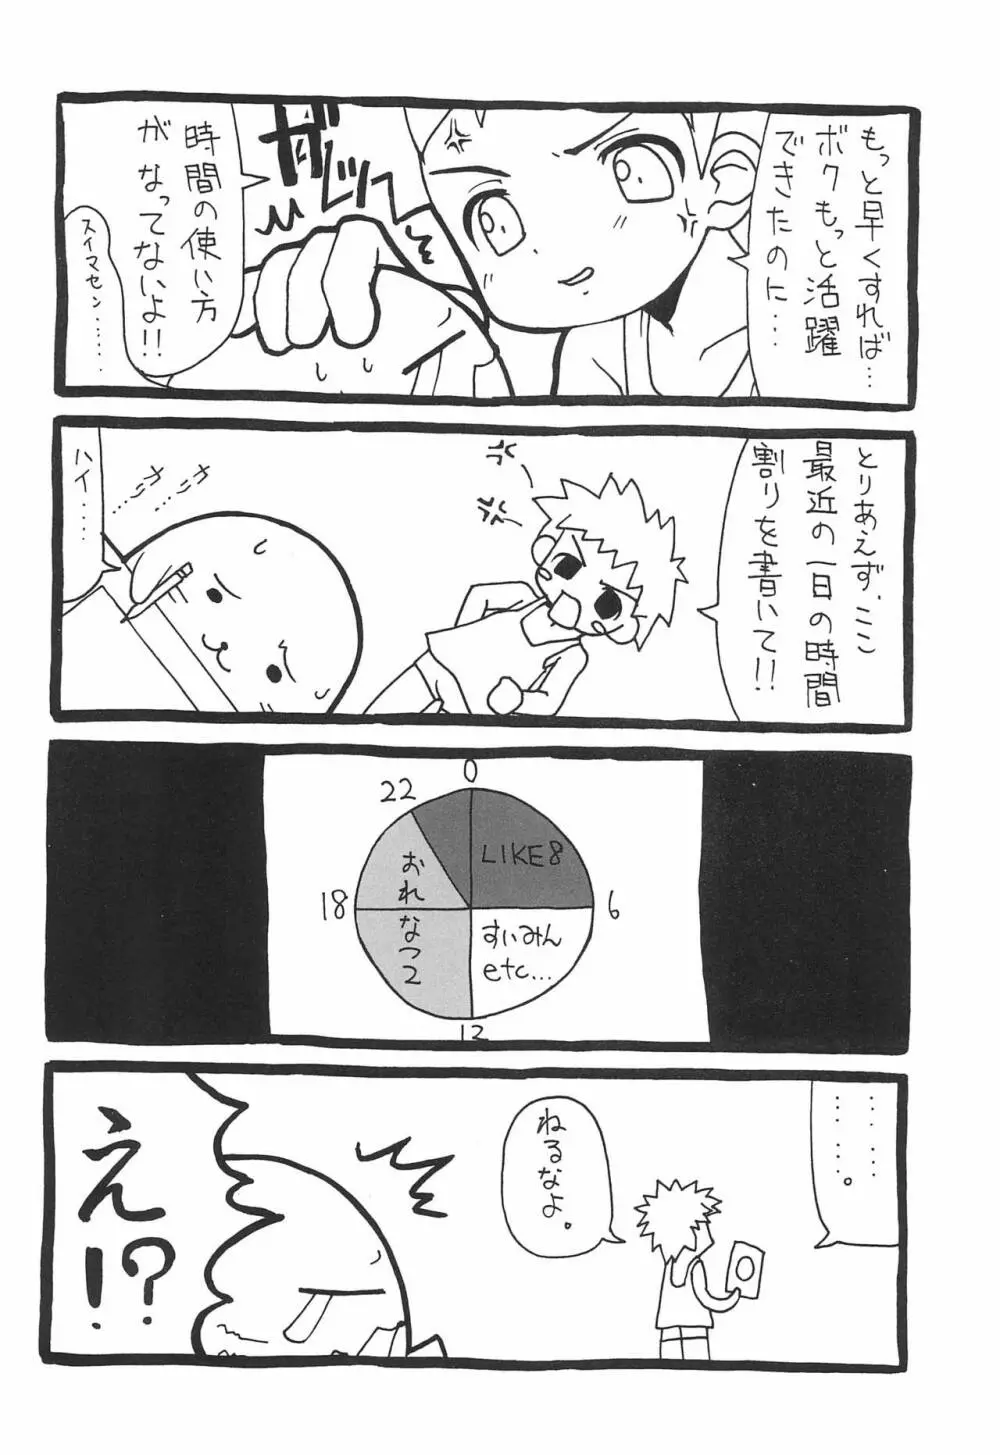 もっと早くすれば…
ボクもっと活躍
できたのに……
ガシッ
時間の使い方
がなってないよ!!
スイマセン………
とりあえず、ここ
最近の一日の時間
割りを書いて!!
ハイ……
0
22
LIKE8
おれ
18
6
なつ2
すいみん
etc…
12
………。
ねるなよ。
え!?